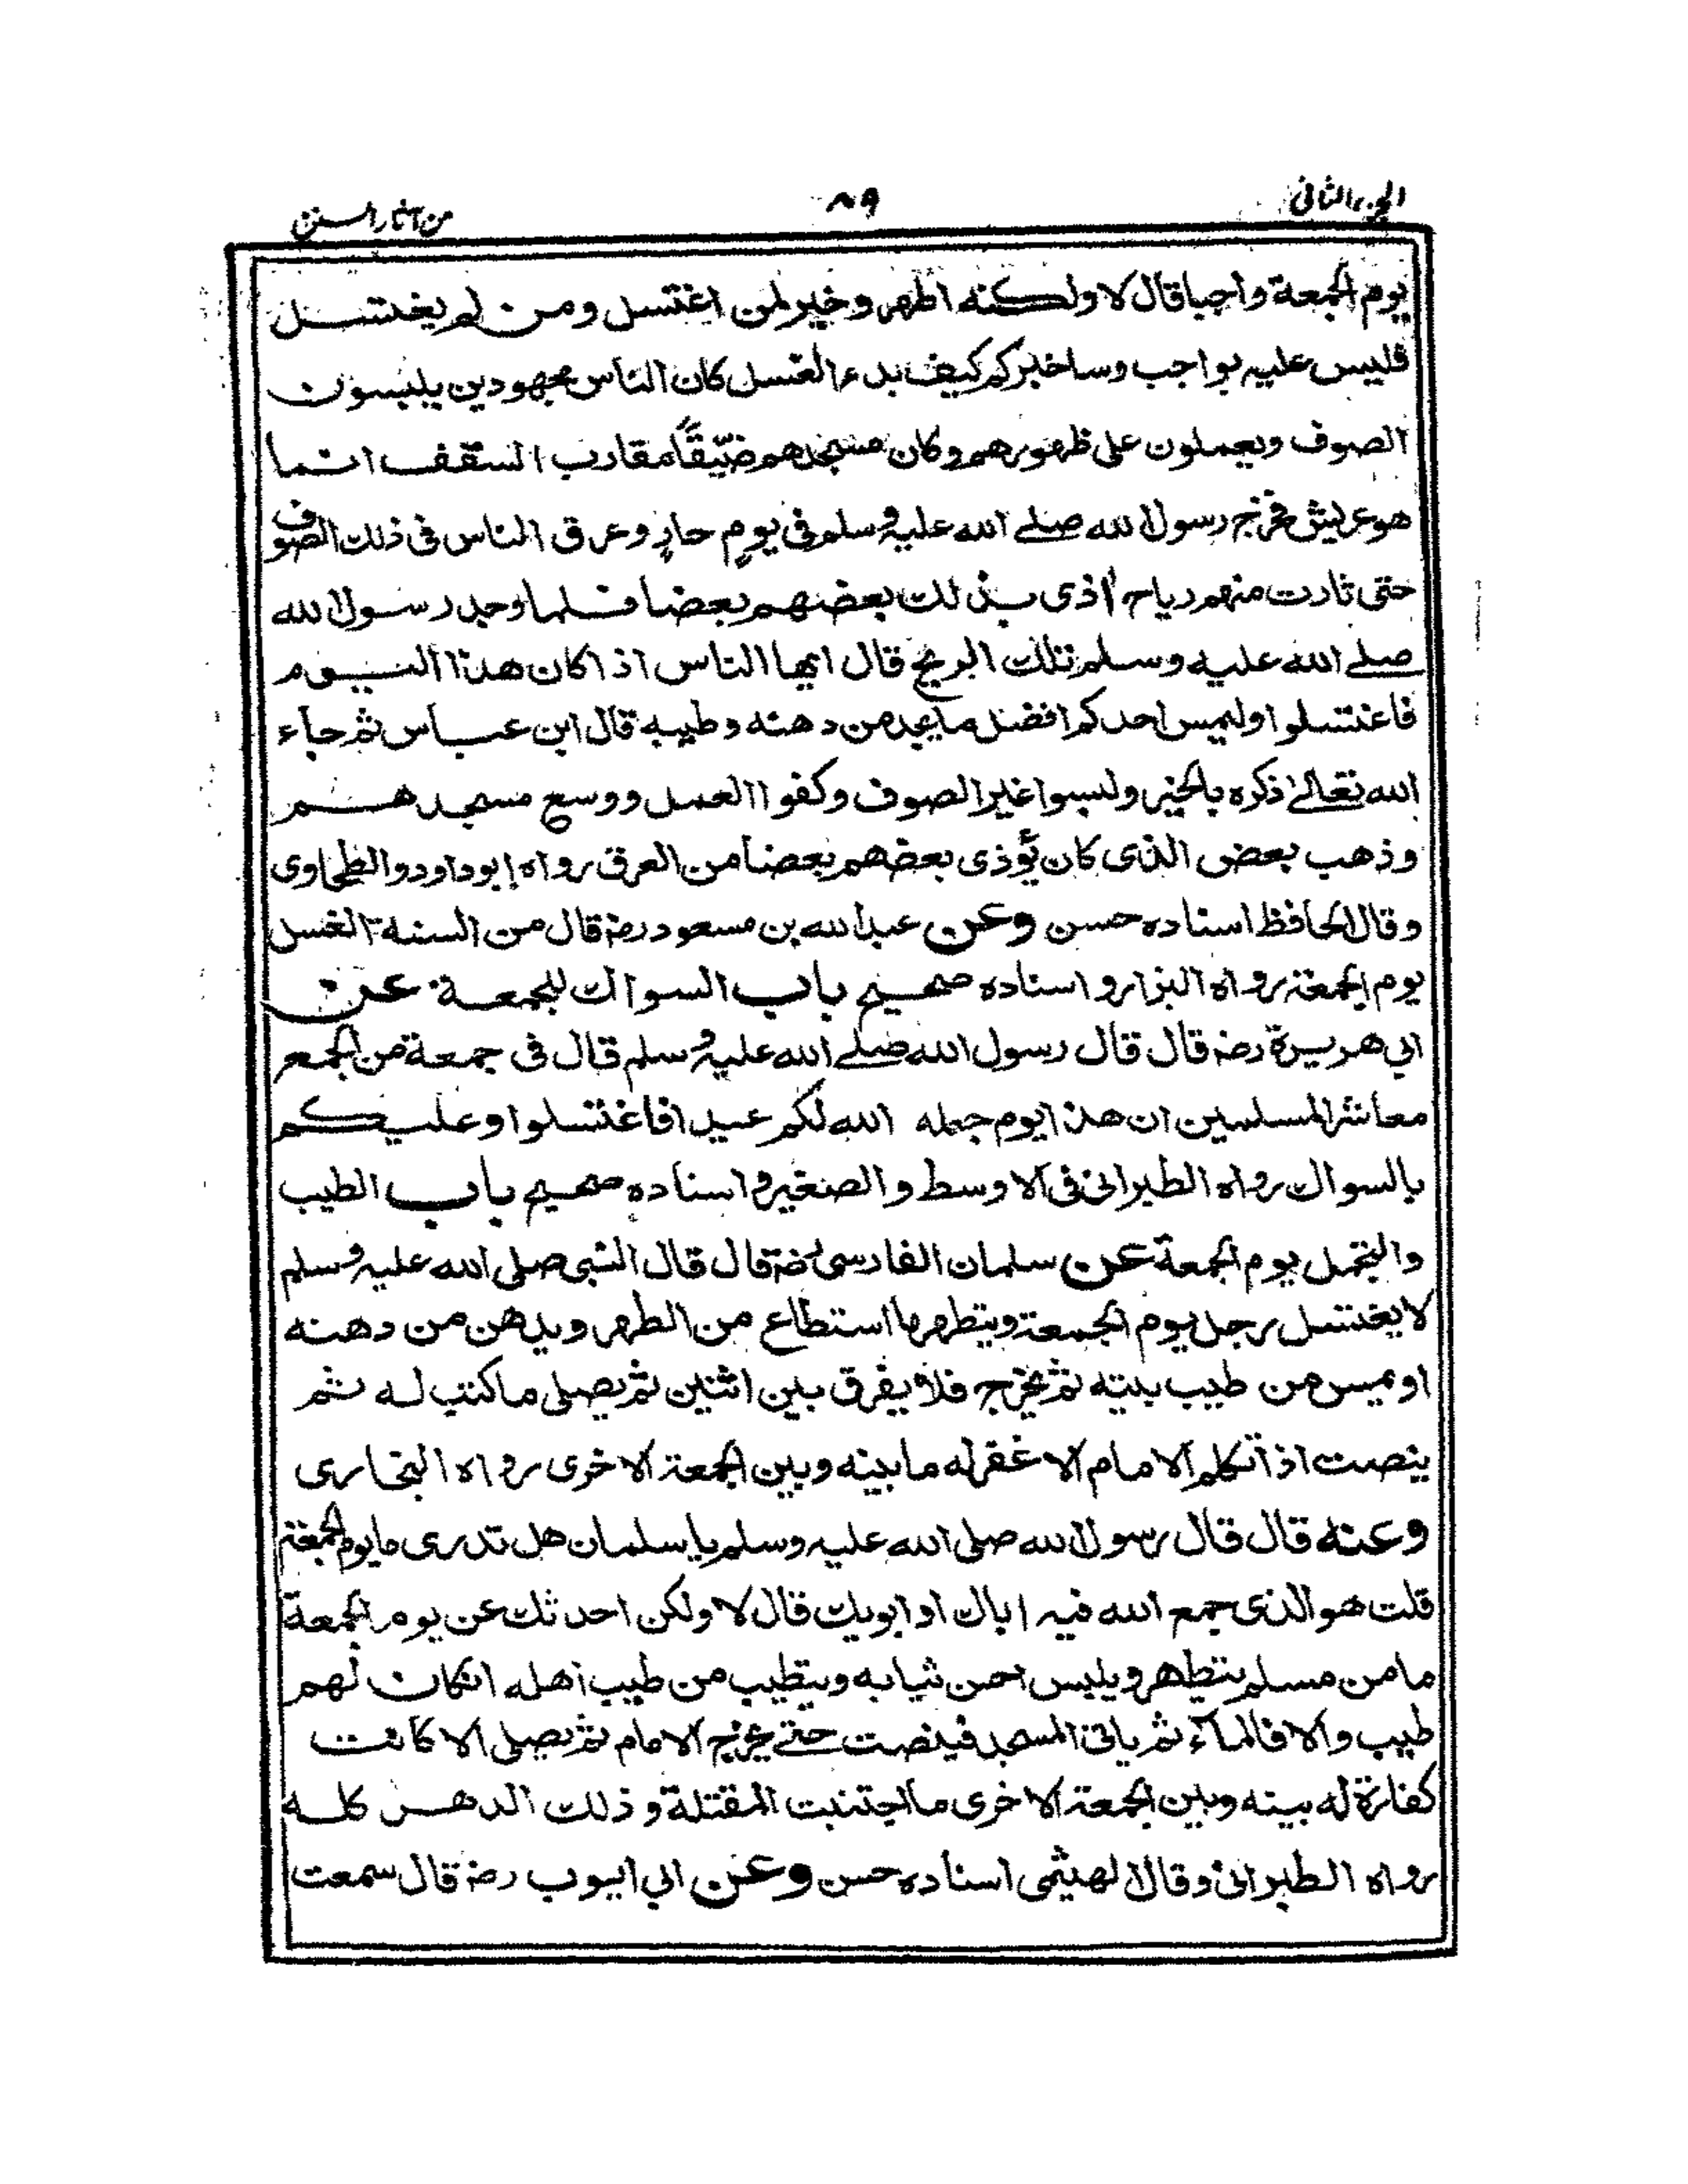 الجزء الثانى
٨٩
من آثار السنن
يوم الجمعة واجبا قال لا ولكنه اطهر وخير لمن اغتسل ومن لم يغتسل
فليس عليه بواجب وساخبركم كيف بدء الغسل كان الناس مجهودين يلبسون
الصوف ويعملون على ظهورهم وكان مسجدهم ضيّقًا مقارب السقف انما
هو عريش فخرج رسول الله صلے الله عليه وسلم فى يومٍ حارٍ وعرق الناس فى ذلك الصوف
حتى ثارت منهم رياح اذى بذلك بعضهم بعضا فلما وجد رسول الله
صلے الله عليه وسلم تلك الريح قال ايها الناس اذا كان هذا اليوم
فاغتسلوا وليمس احدكم افضل ما يجد من دهنه وطيبه قال ابن عباس ثم جاء
الله تعالےٰ ذكره بالخير ولبسوا غير الصوف وكفوا العمل ووسع مسجدهم
وذهب بعض الذى كان يؤذى بعضهم بعضا من العرق رواه ابوداود والطحاوى
وقال الحافظ اسناده حسن وعن عبد الله بن مسعود رضہ قال من السنة الغسل
يوم الجمعة رواه البزار و اسناده صحيح باب السواك للجمعة عن
ابي هريرة رضہ قال قال رسول الله صلے الله عليه وسلم قال فى جمعة من الجمع
معاشر المسلمين ان هذا يوم جعله الله لكم عيدا فاغتسلوا وعليكم
بالسواك رواه الطبرانى فى الاوسط والصغير و اسناده صحيح باب الطيب
والتجمل يوم الجمعة عن سلمان الفارسى رضہ قال قال النبى صلى الله عليه وسلم
لا يغتسل رجل يوم الجمعة ويتطهر ما استطاع من الطهر ويدهن من دهنه
او يمس من طيب بيته ثم يخرج فلا يفرق بين اثنين ثم يصلى ما كتب له ثم
ينصت اذا تكلم الامام الا غفر له ما بينه وبين الجمعة الاخرى رواه البخارى
وعنه قال قال رسول الله صلى الله عليه وسلم يا سلمان هل تدرى ما يوم الجمعة
قلت هو الذى جمع الله فيه اباك او ابويك قال لا ولكن احدثك عن يوم الجمعة
ما من مسلم يتطهر ويلبس احسن ثيابه ويتطيب من طيب اهله انكان لهم
طيب والا فالماء ثم ياتى المسجد فينصت حتے يخرج الامام ثم يصلى الا كانت
كفارة له بينه وبين الجمعة الاخرى ما اجتنبت المقتلة و ذلك الدهر كله
رواه الطبرانى وقال الهيثمى اسناده حسن وعن ابي ايوب رضہ قال سمعت